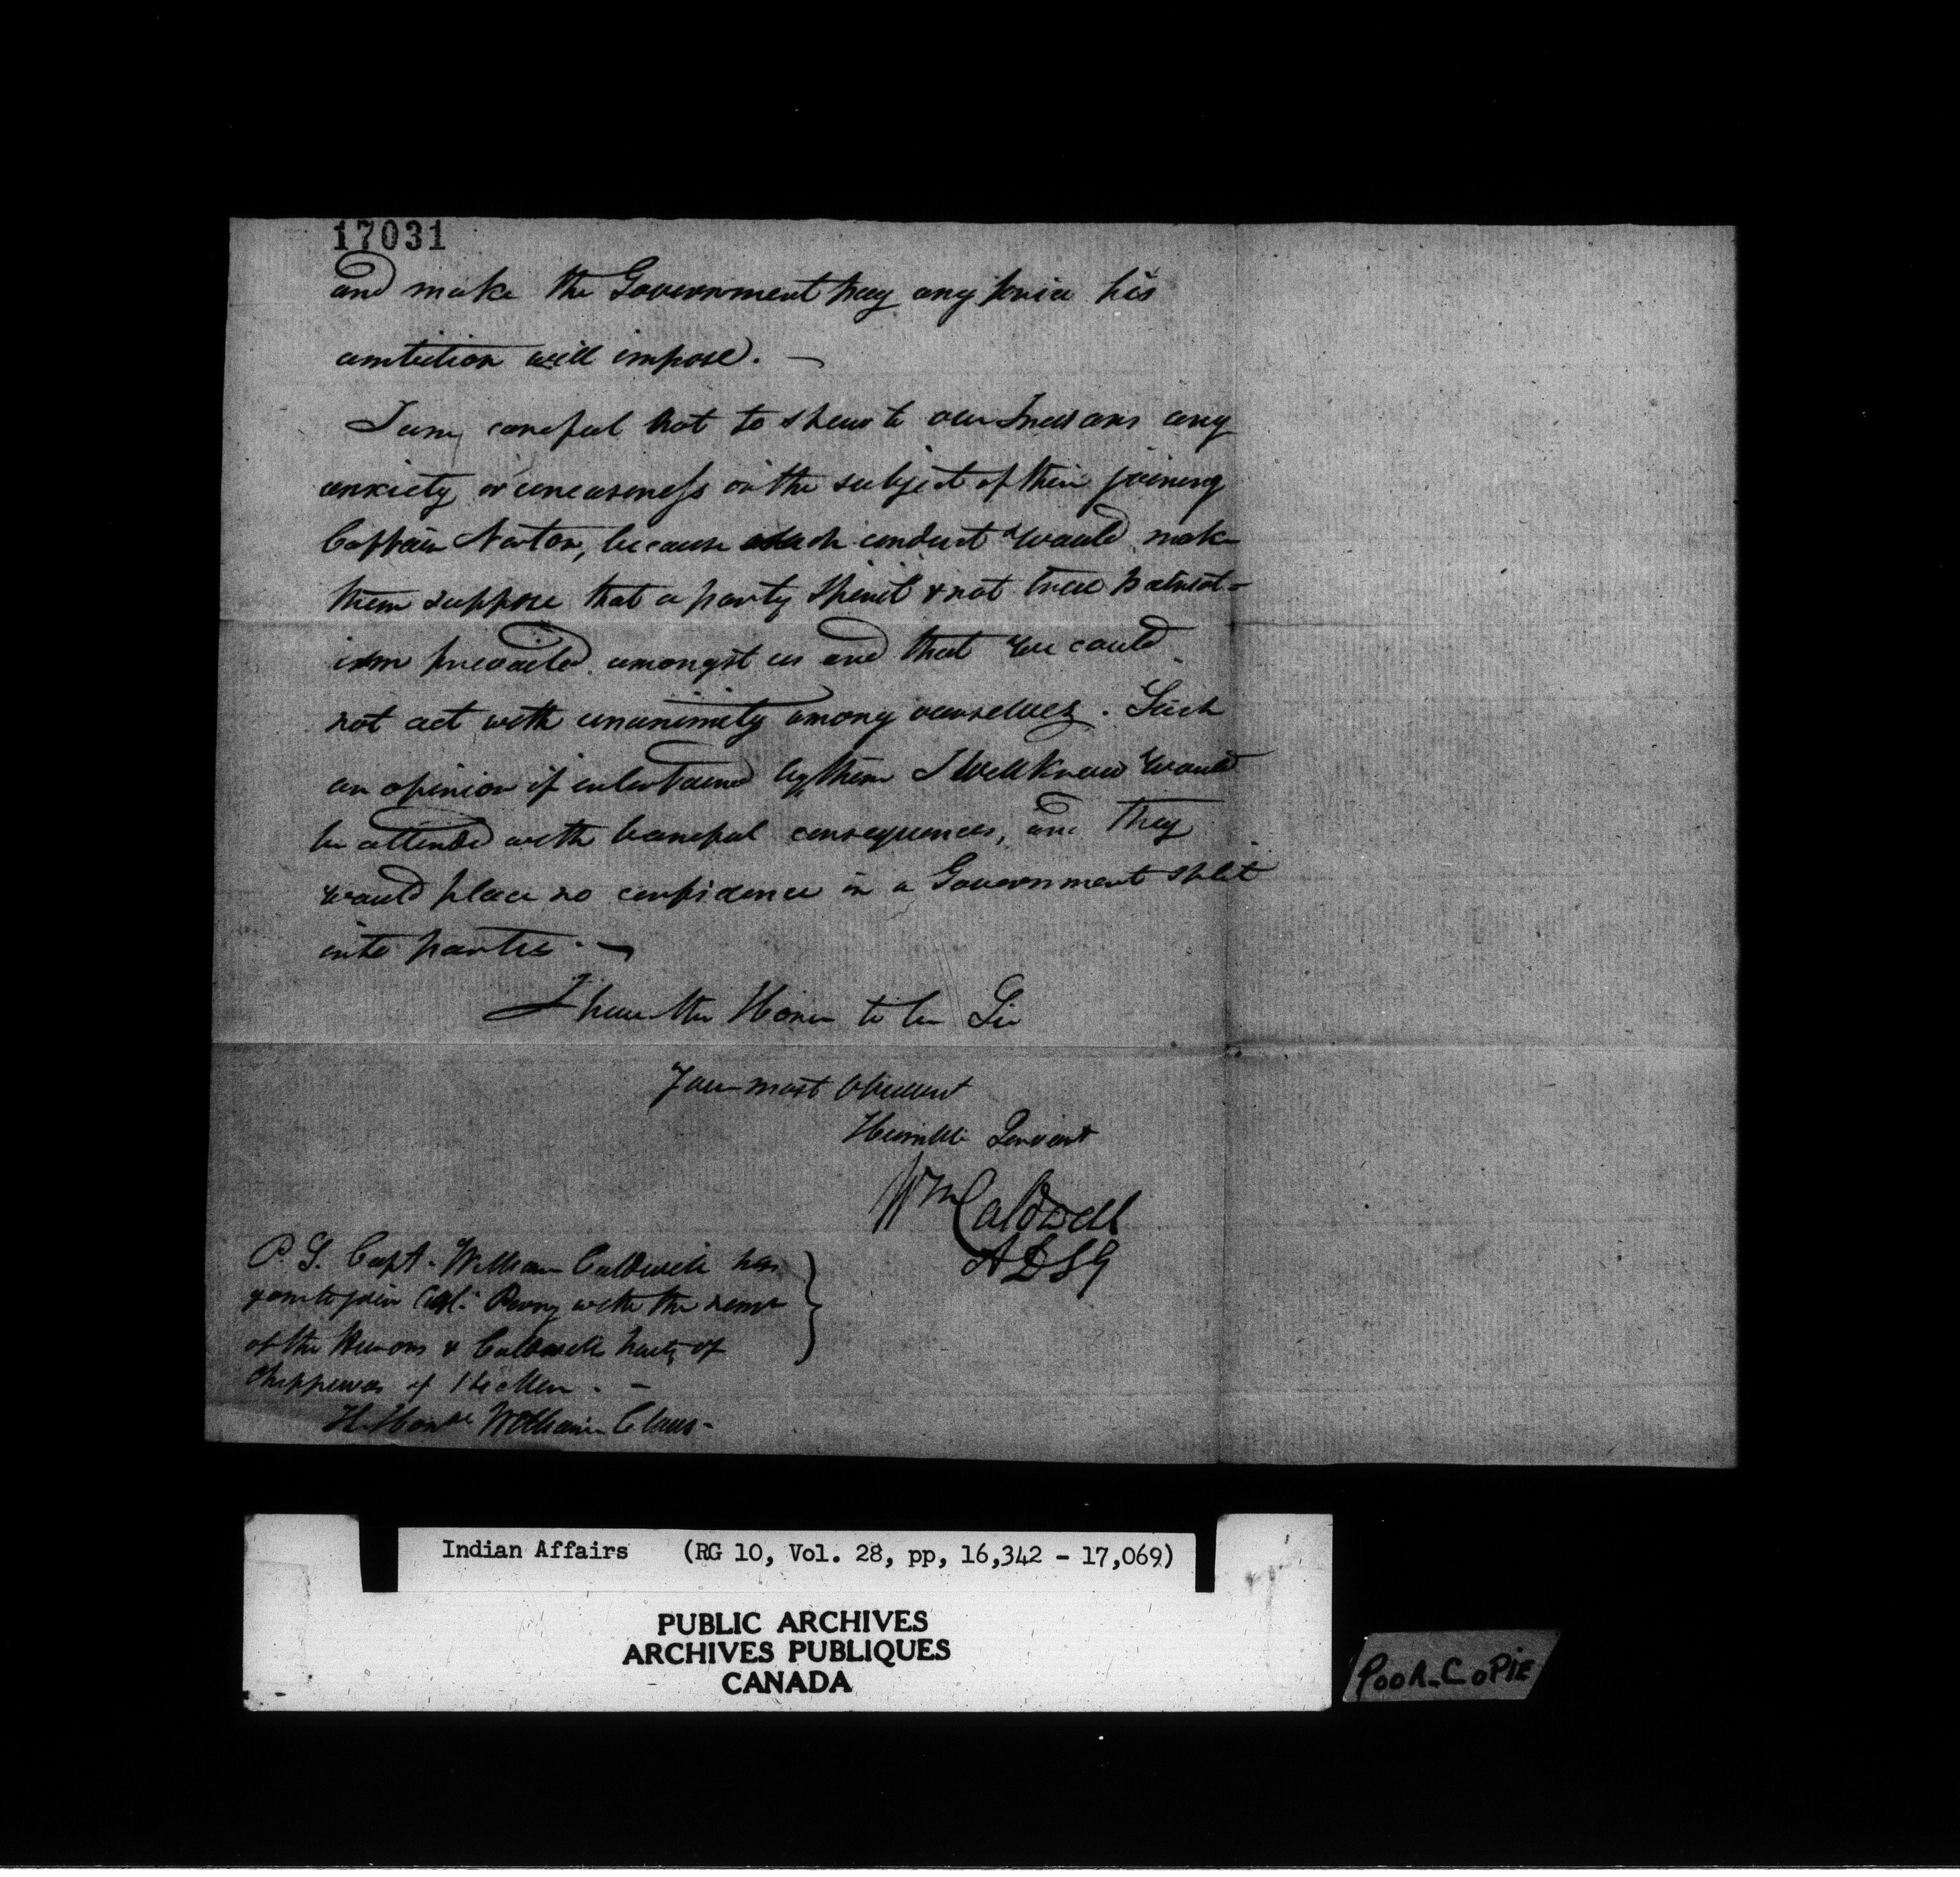 17031
and make the Government pay any price his
ambition will impose. —
I am careful not to shew to our Indians any
anxiety or uneasiness on the subject of their joining
Captain Norton, because such conduct would make
them suppose that a party spirit & not true patriot-
ism prevailed amongst us and that we could
not act with unanimity among ourselves. Such
an opinion if entertained by them I well know would
be attended with baneful consequences, and they
would place no confidence in a Government split
into parties. —
I have the Honor to be Sir
Your most obedient
Humble Servant
Wm Caldwell
ADSG
P.S. Capt. William Caldwell has
gone to join with the
of the Hurons & Caldwells party of
Chippewas of Men. —
H. Honble William Claus-
Indian Affairs (RG 10, Vol. 28, pp, 16,342 - 17,069)
PUBLIC ARCHIVES
ARCHIVES PUBLIQUES
CANADA
POOR-COPIE